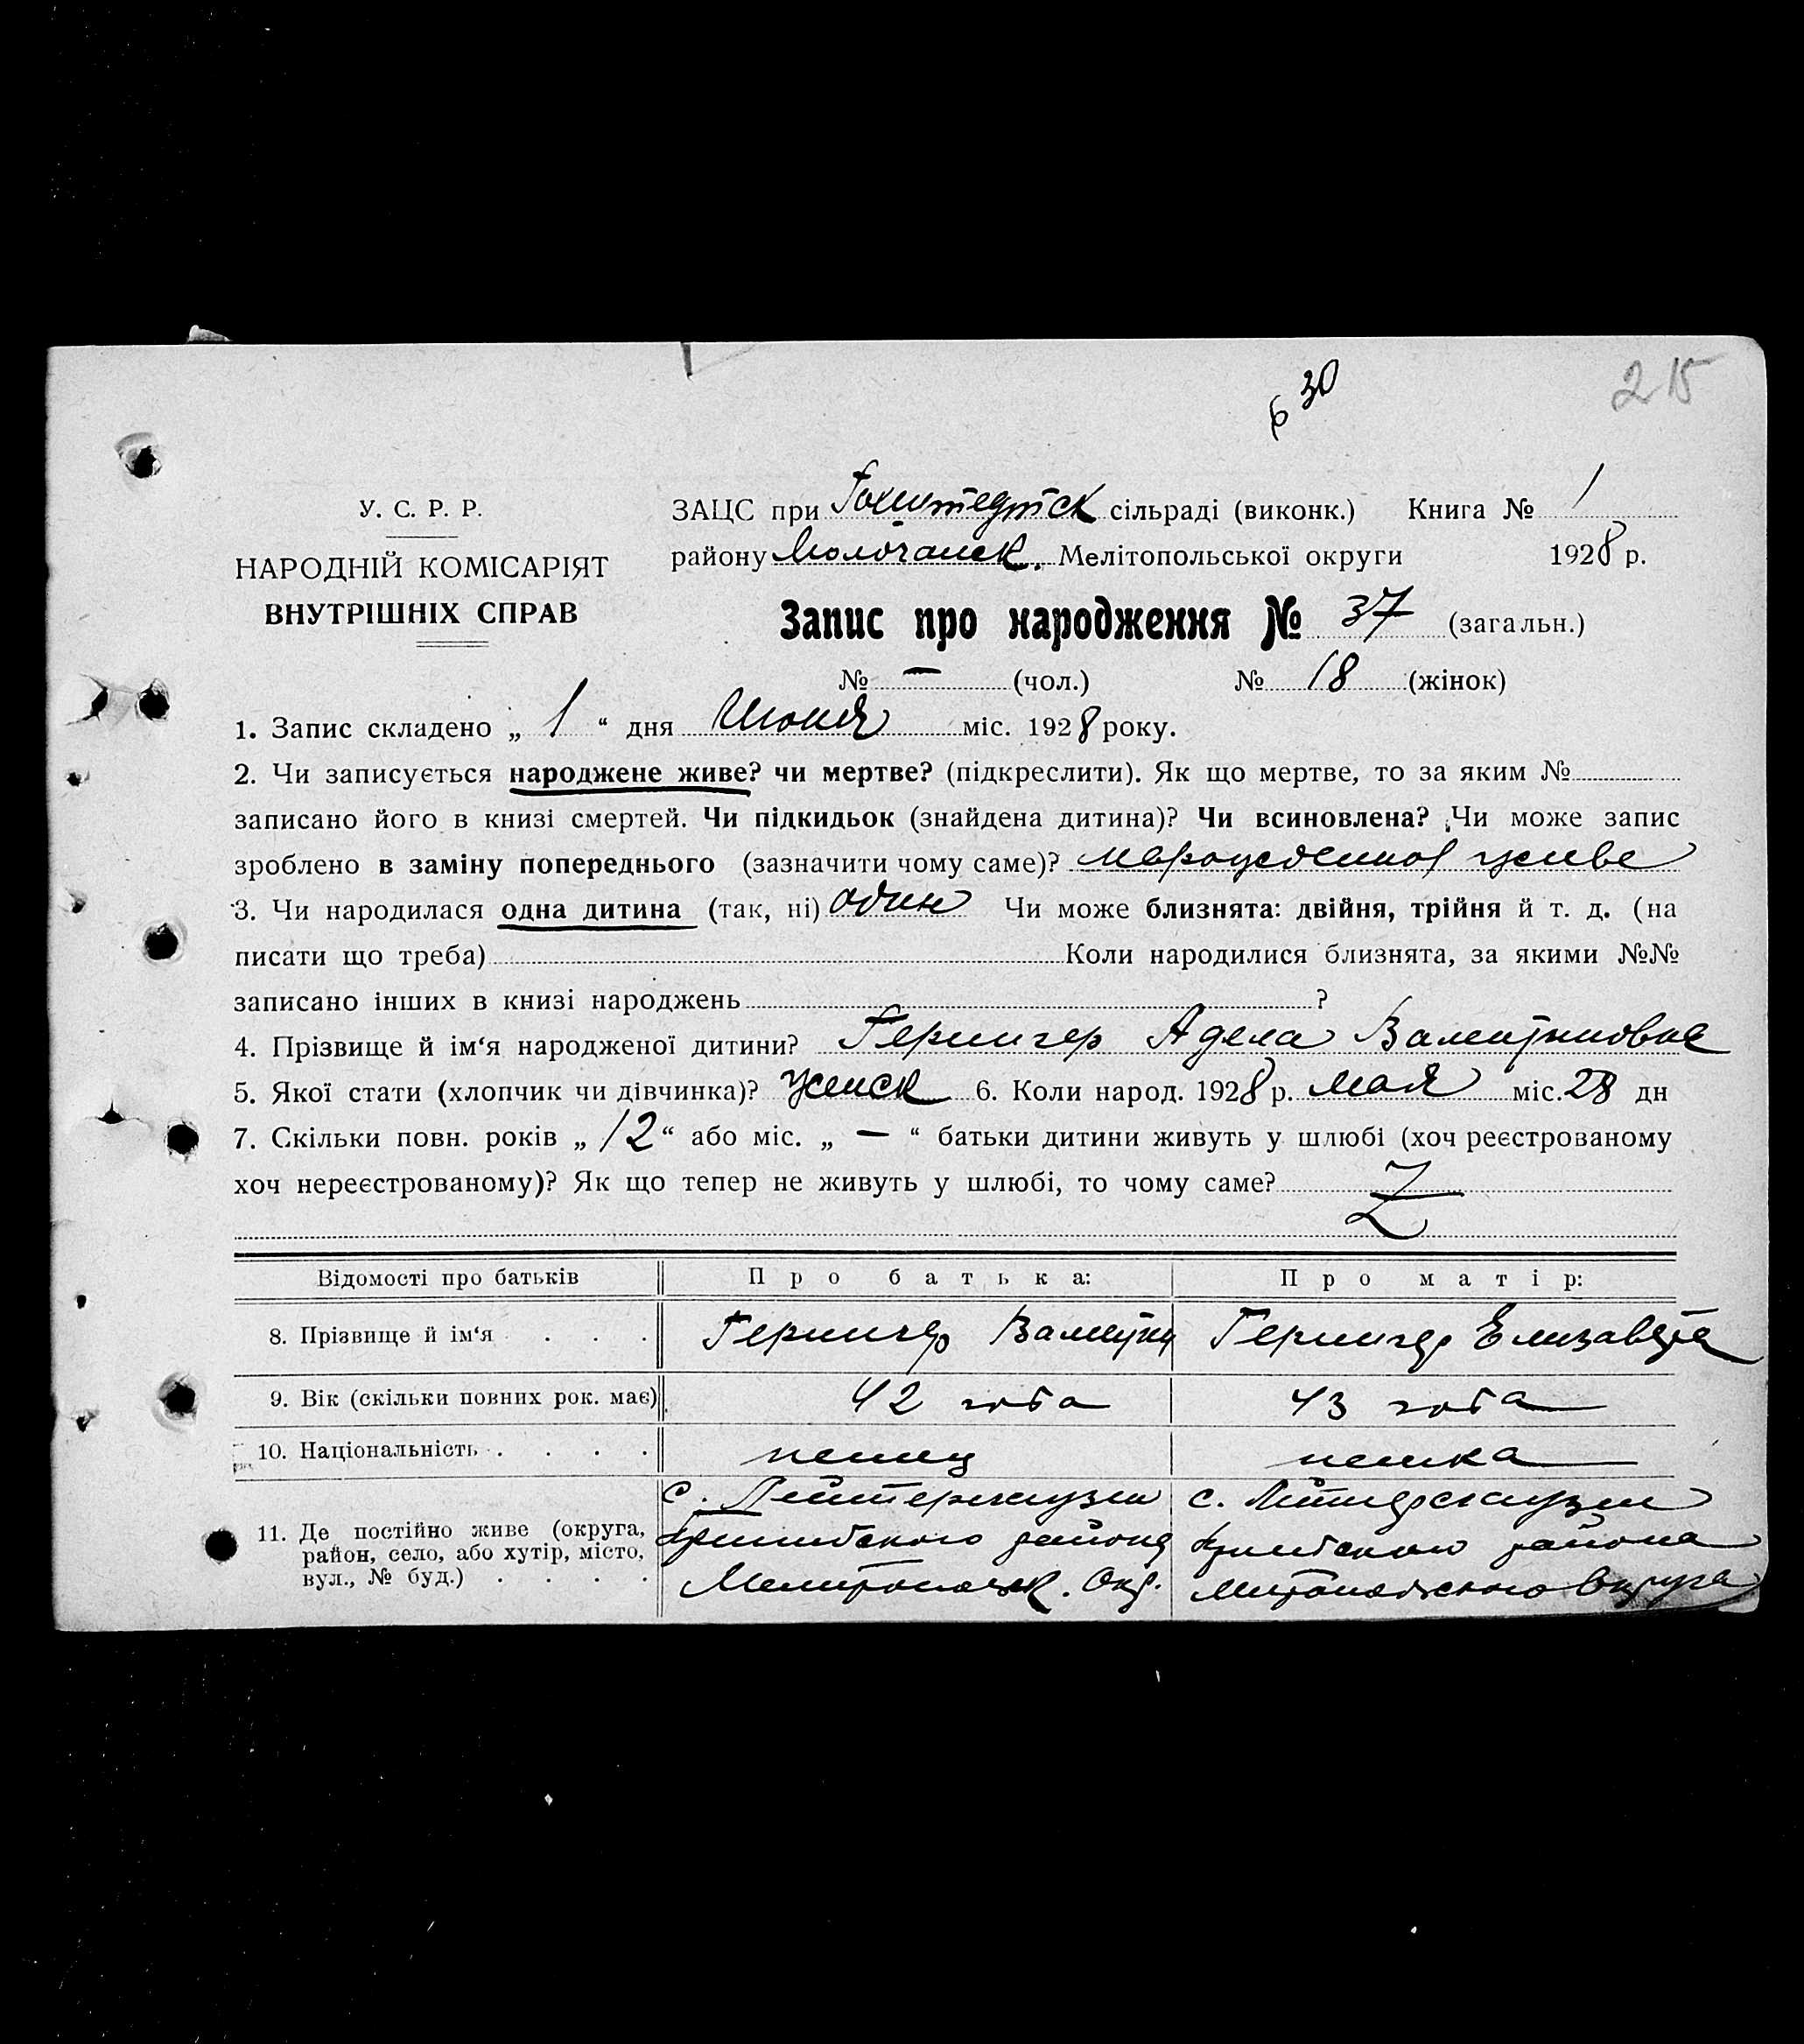 6 30
215
У. С. Р. Р.
НАРОДНІЙ КОМІСАРІЯТ
ВНУТРІШНІХ СПРАВ
ЗАЦС при Гохштедтск сільраді (виконк.) Книга № 1
району Молочанск. Мелітопольської округи 1928 р.
Запис про народження № 37 (загальн.)
№ — (чол.) № 18 (жінок)
1. Запис складено „ 1 “ дня Июня міс. 1928 року.
2. Чи записується народжене живе? чи мертве? (підкреслити). Як що мертве, то за яким №
записано його в книзі смертей. Чи підкидьок (знайдена дитина)? Чи всиновлена? Чи може запис
зроблено в заміну попереднього (зазначити чому саме)? живе
3. Чи народилася одна дитина (так, ні) один Чи може близнята: двійня, трійня й т. д. (на
писати що треба) Коли народилися близнята, за якими №№
записано інших в книзі народжень ?
4. Прізвище й ім‘я народженої дитини? Герингер Адела Валентиновна
5. Якої стати (хлопчик чи дівчинка)? женск 6. Коли народ. 1928 р. мая міс. 28 дн
7. Скільки повн. років „ 12 “ або міс. „ — “ батьки дитини живуть у шлюбі (хоч реєстрованому
хоч нереєстрованому)? Як що тепер не живуть у шлюбі, то чому саме? Z
Відомості про батьків Про батька: Про матір:
8. Прізвище й ім‘я . . . Герингер Валентин Герингер Елизавета
9. Вік (скільки повних рок. має) 42 года 43 года
10. Національність . . . . немец немка
11. Де постійно живе (округа, район, село, або хутір, місто, вул., № буд.) . . . .
с. Лейтерсгаузен
района
Мелитопольск. Окр.
с. Лейтерсгаузен
района
Мелитопольского Округа